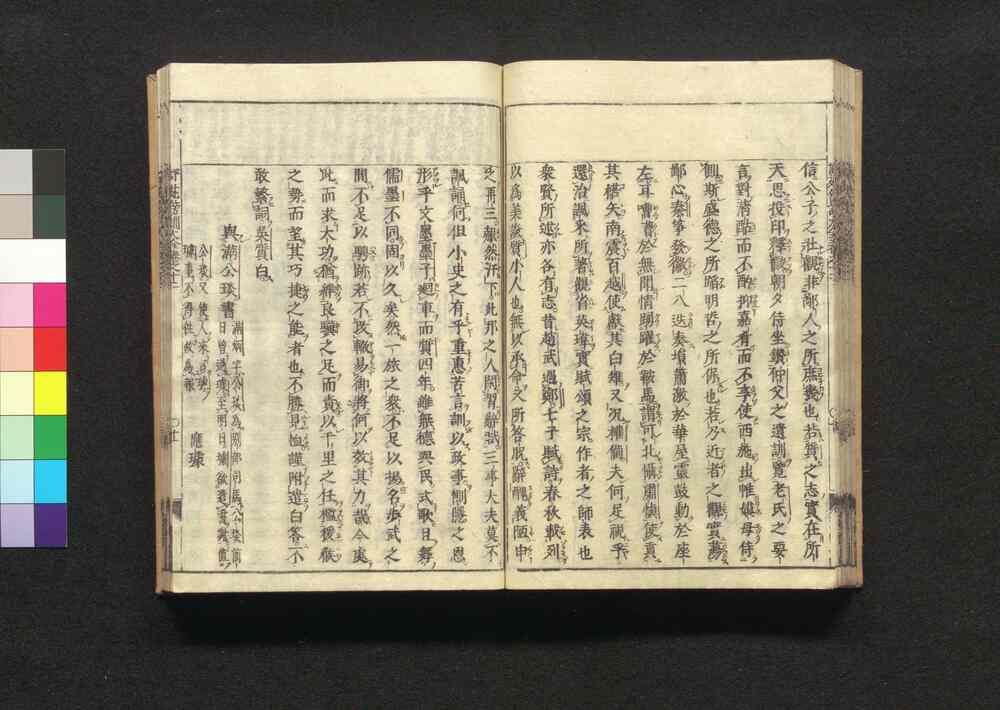 信公子之壯觀非鄙人之所庶幾也若質之志實在所
天思投印釋黻朝夕侍坐鑽仲父之遺訓覽老氏之要
言對清酤而不酌抑嘉肴而不享使西施出帷嫫母侍
側斯盛德之所蹈明哲之所保也若乃近者之觀實蕩
鄙心秦箏發徽二八迭奏塤簫激於華屋靈鼓動於座
左耳嘈嘈於無聞情踴躍於鞍馬謂可北懾肅慎使貢
其楛矢南震百越使獻其白雉又況權備夫何足視乎
還治諷采所著觀省英瑋實賦頌之宗作者之師表也
衆賢所述亦各有志昔趙武過鄭七子賦詩春秋載列
以為美談質小人也無以承命又所答貺辭醜義陋申
之再三赧然汗下此邦之人閑習辭賦三事大夫莫不
諷誦何但小史之有乎重惠苦言訓以政事惻隱之恩
形乎文墨墨子廻車而質四年雖無德與民式歌且舞
儒墨不同固以久矣然一旅之衆不足以揚名步武之
間不足以騁跡若不改轍易御將何以效其力哉今處
此而求大功猶絆良驥之足而責以千里之任檻猨猴
之勢而望其巧捷之能者也不勝見恤謹附遣白答不
敢繁詞吳質白
與滿公琰書
應璩